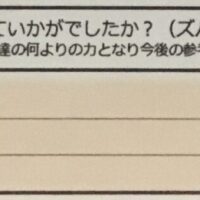 ていかがでしたか？（ズバ
達の何よりの力となり今後の参考